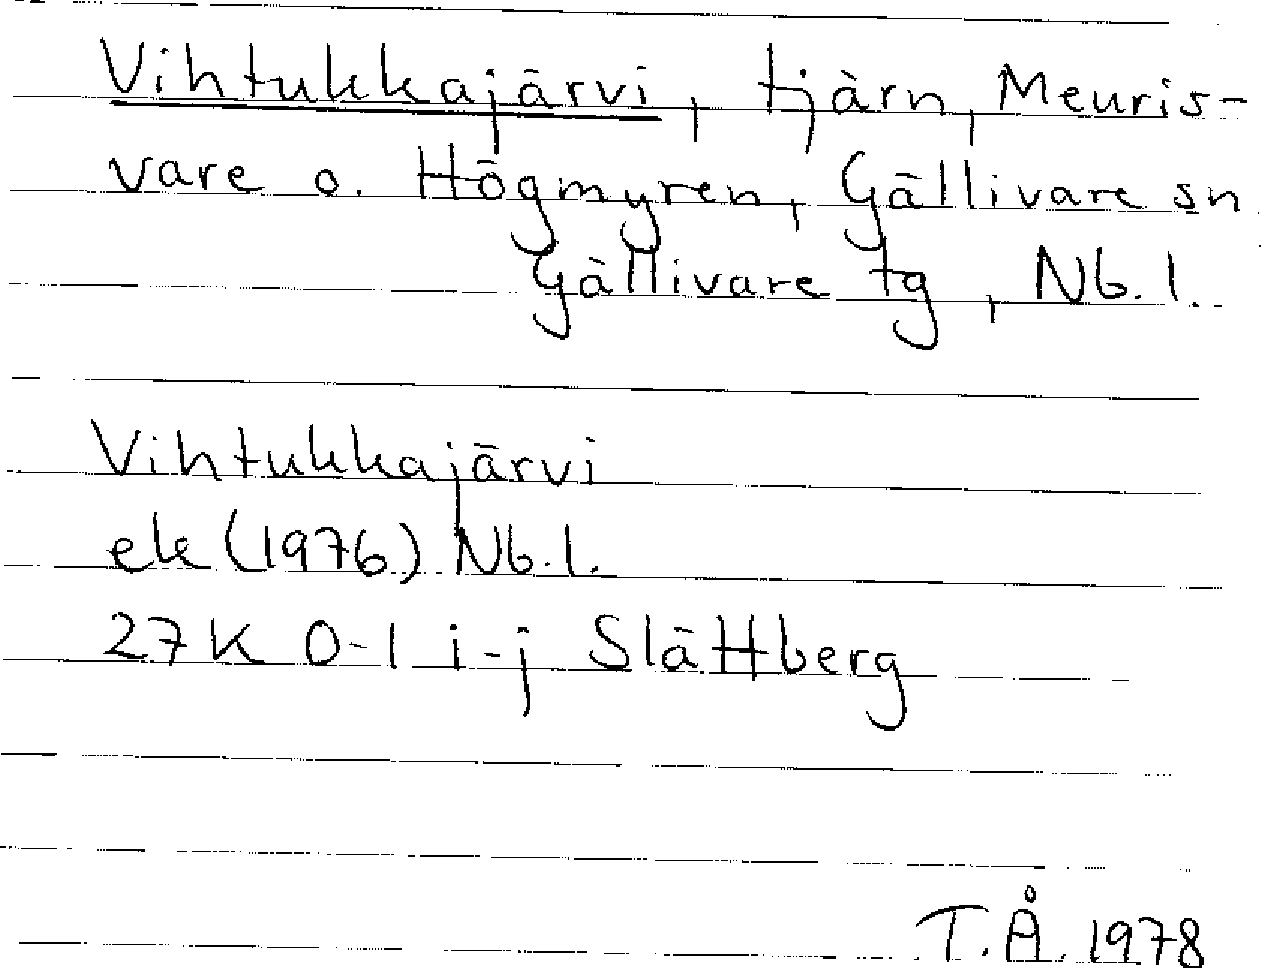 Vihtukkajärvi, tjärn, Meuris-
vare o. Högmyren, Gällivare sn
Gällivare tg, Nb. l.
Vihtukkajärvi
ek (1976) Nb. l.
27 K 0-1 i-j Slättberg
T.Å. 1978